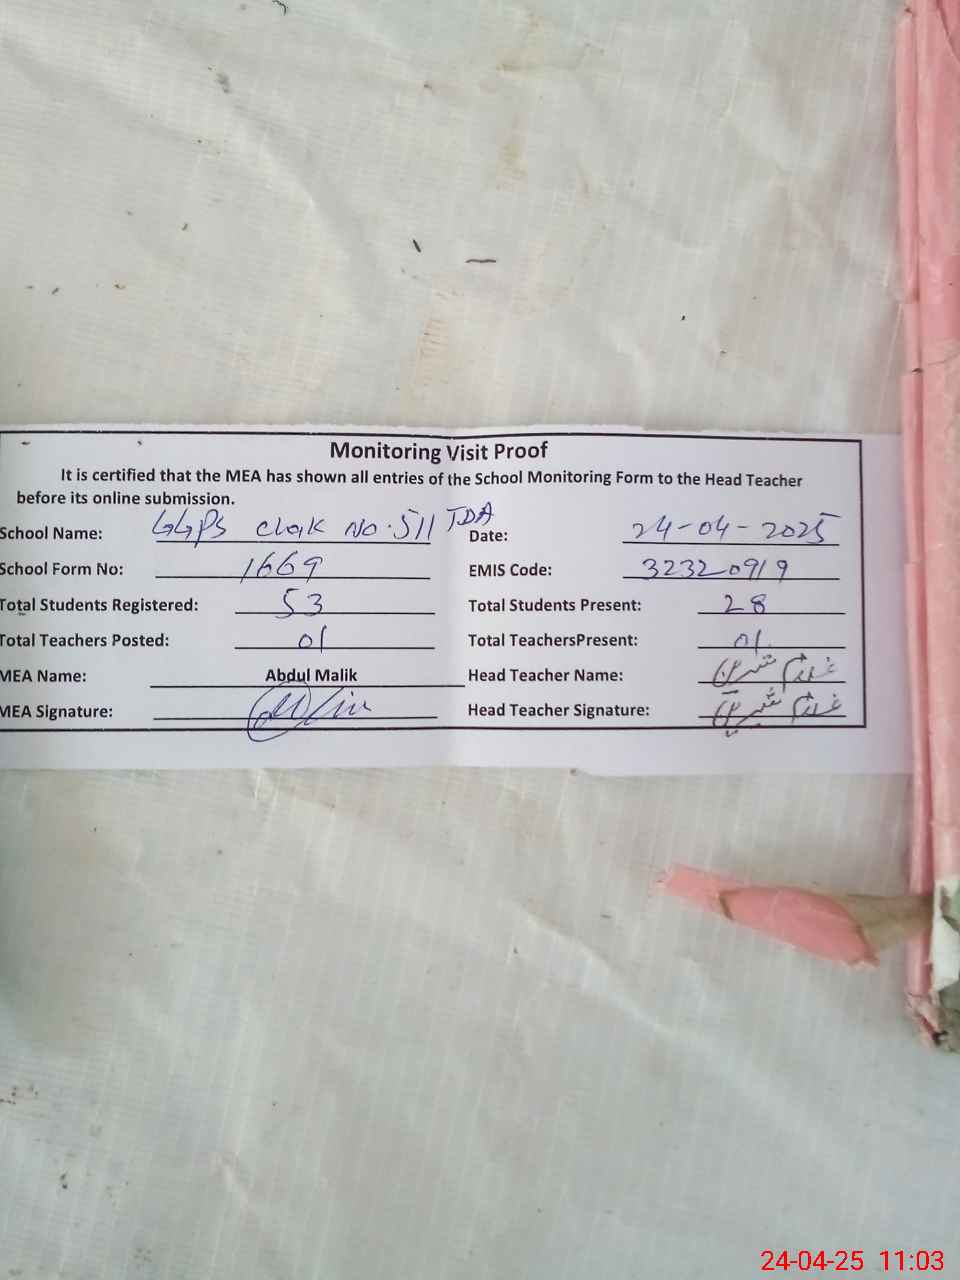 Monitoring Visit Proof
It is certified that the MEA has shown all entries of the School Monitoring Form to the Head Teacher
before its online submission.
School Name: GGPS Chak No. 511 TDA Date: 24-04-2025
School Form No: 1669 EMIS Code: 32320919
Total Students Registered: 53 Total Students Present: 28
Total Teachers Posted: 01 Total TeachersPresent: 01
MEA Name: Abdul Malik Head Teacher Name: شیریں
MEA Signature: Head Teacher Signature: شیریں
24-04-25 11:03